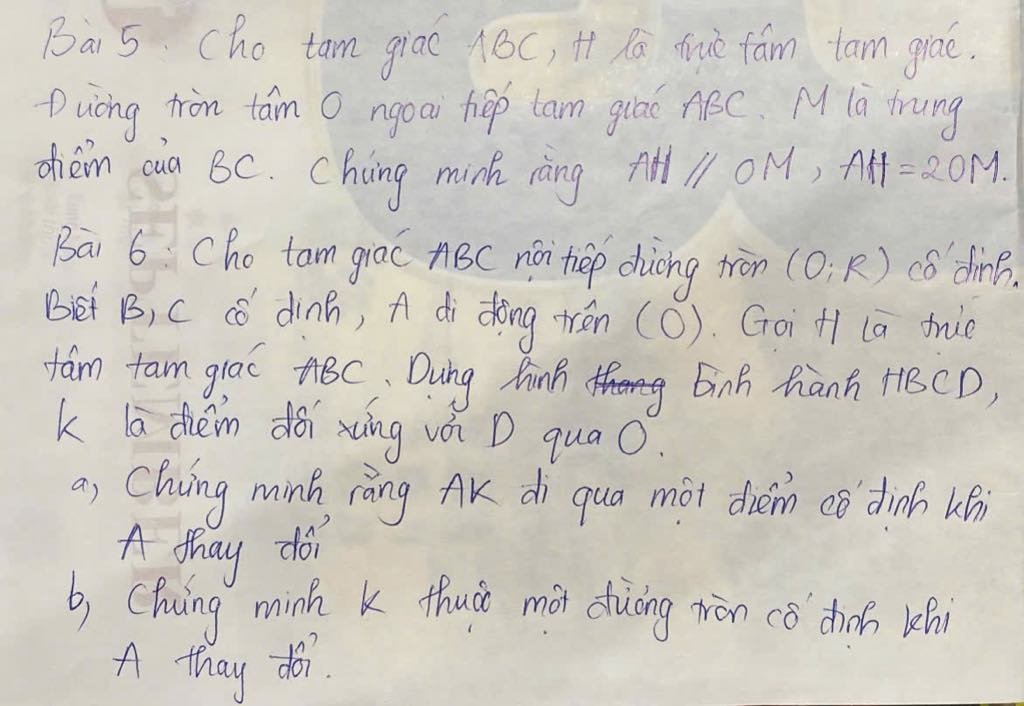 Bài 5 : Cho tam giác ABC, H là trực tâm tam giác.
Đường tròn tâm O ngoại tiếp tam giác ABC. M là trung
điểm của BC. Chứng minh rằng AH // OM, AH = 2OM.
Bài 6 : Cho tam giác ABC nội tiếp đường tròn (O; R) cố định.
Biết B, C cố định, A di động trên (O). Gọi H là trực
tâm tam giác ABC. Dựng hình thang bình hành HBCD,
K là điểm đối xứng với D qua O.
a, Chứng minh rằng AK đi qua một điểm cố định khi
A thay đổi
b, Chứng minh K thuộc một đường tròn cố định khi
A thay đổi.